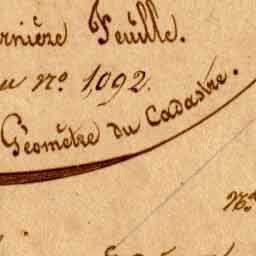 rnière Feuille.
au nº. 1,092.
Géomètre du Cadastre.